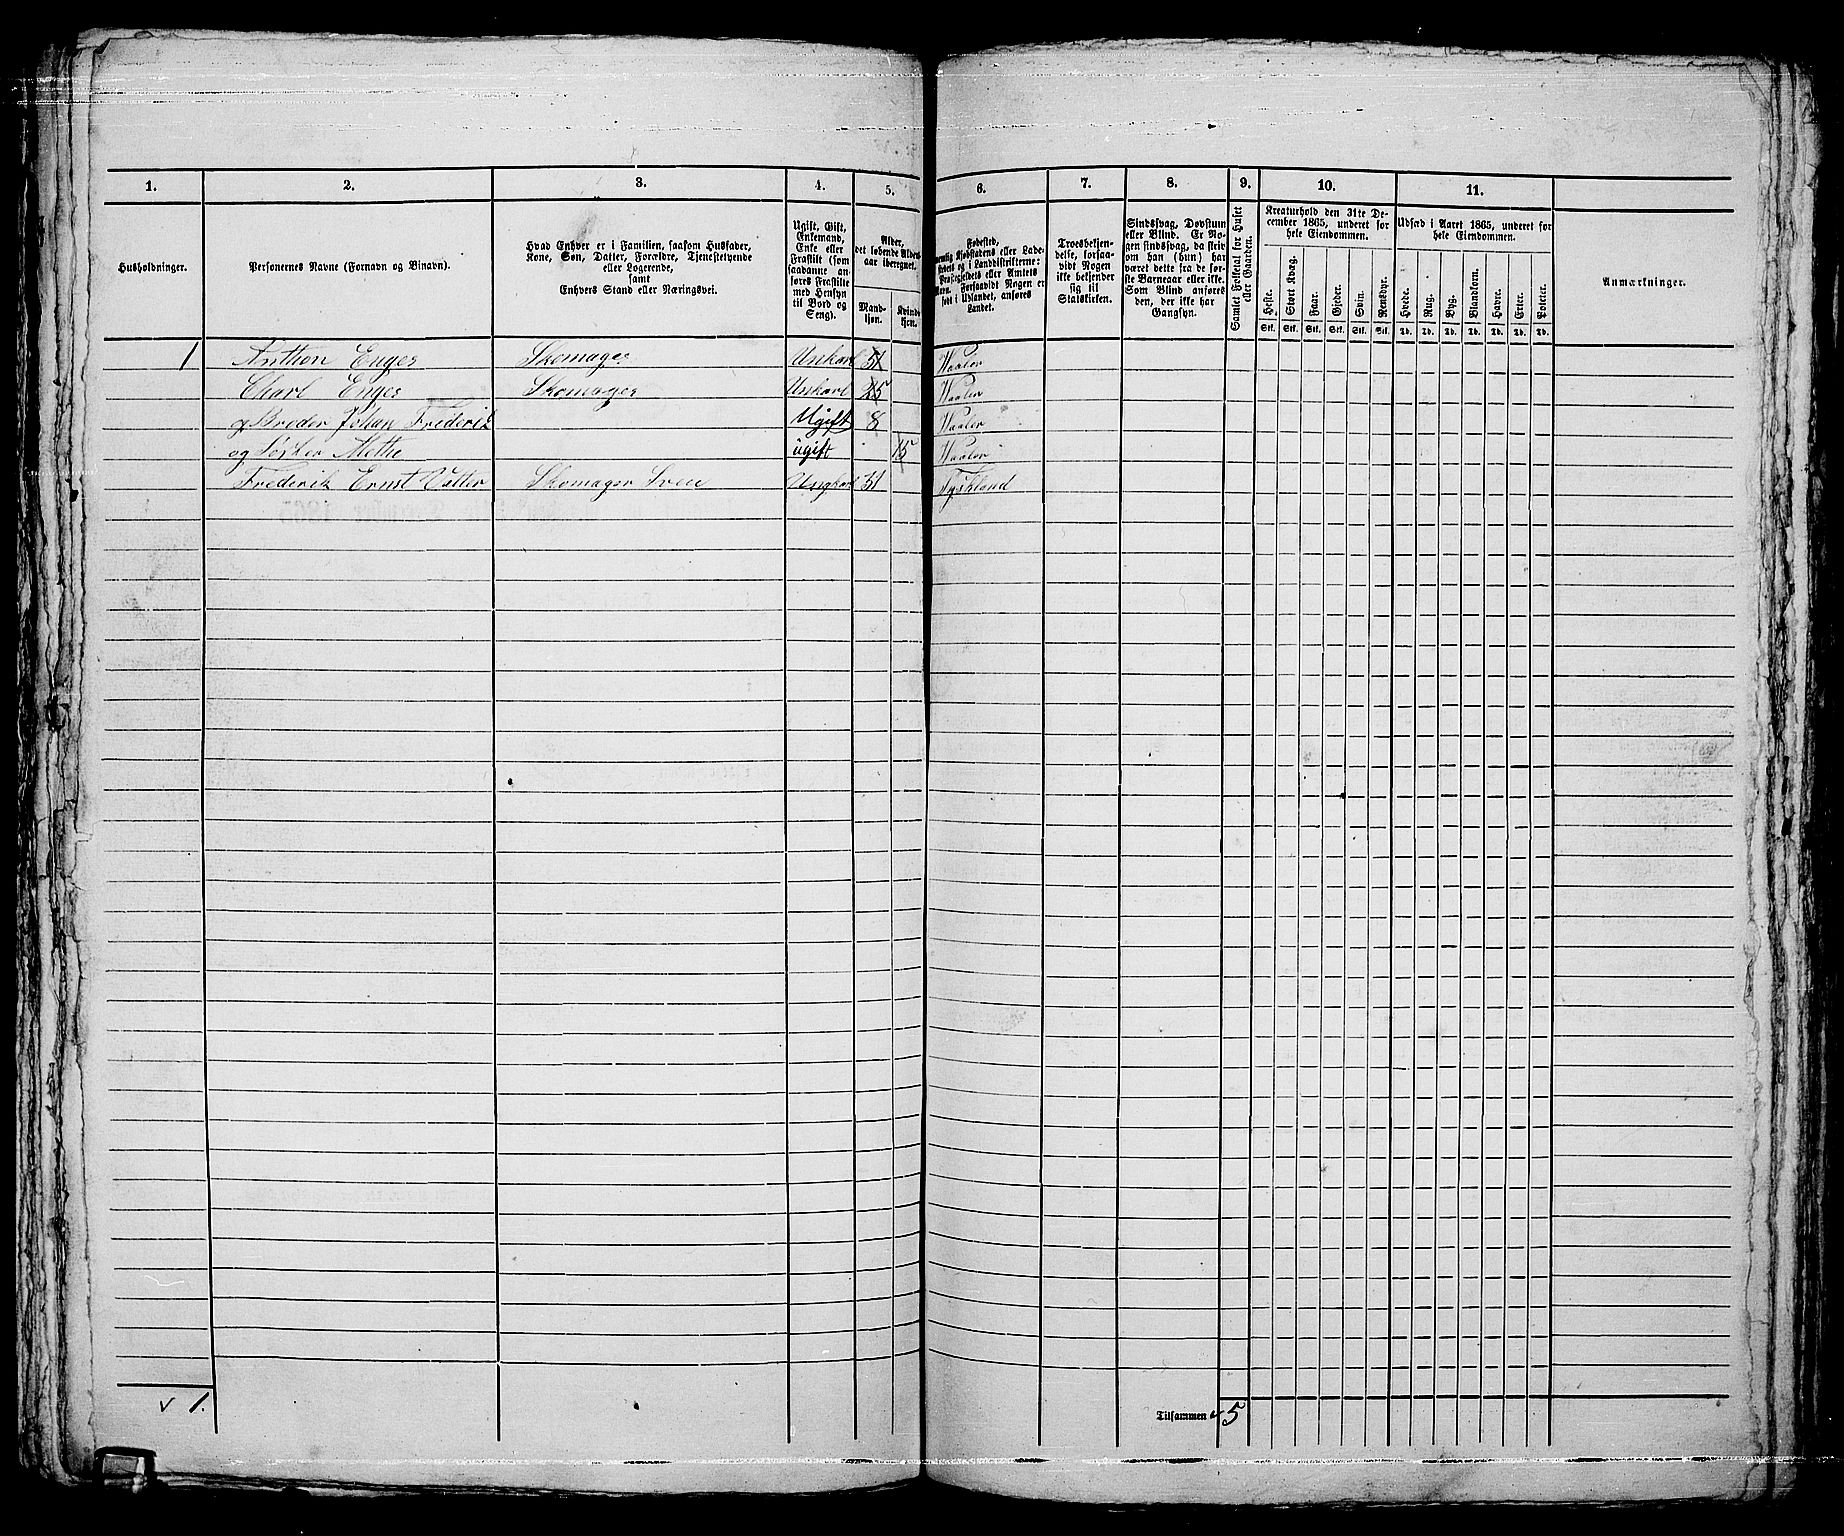 1.
2.
3.
4.
5.
6.
7.
8.
9.
10.
11.
Husholdninger.
Personernes Navne (Fornavn og Binavn).
Hvad Enhver er i Familien, saasom Husfader,
Kone, Søn, Datter, Forældre, Tjenestetyende
eller Logerende,
samt
Enhvers Stand eller Næringsvei.
Ugift, Gift,
Enkemand,
Enke eller
Fraskilt (som
saadanne an-
føres Fraskilte
med Hensyn
til Bord og
Seng).
Alder,
det løbende Alders-
aar iberegnet.
Mand-
kjøn.
Kvinde-
kjøn.
Fødested,
nemlig Kjøbstadens eller Lade-
stedets og i Landdistrikterne:
Præstegjeldets eller Amtets
Navn. Forsaavidt Nogen er
født i Udlandet, anføres
Landet.
Troesbekjen-
delse, forsaa-
vidt Nogen
ikke bekjender
sig til
Statskirken.
Sindssvag, Døvstum
eller Blind. Er No-
gen sindssvag, da skriv
om han (hun) har
været dette fra de før-
ste Barneaar eller ikke.
Som Blind anføres
den, der ikke har
Gangsyn.
Samlet Folketal for Huset
eller Gaarden.
Kreaturhold den 31te De-
cember 1865, underet for
hele Eiendommen.
Heste.
Stort Kvæg.
Faar.
Gjeder.
Svin.
Rensdyr.
Stk. Stk. Stk. Stk. Stk. Stk.
Udsæd i Aaret 1865, underet for
hele Eiendommen.
Hvede.
Rug.
Byg.
Blandkorn.
Havre.
Erter.
Poteter.
Td. Td. Td. Td. Td. Td. Td.
Anmærkninger.
1 Anthon Enger Skomager Unkarl 31 Waaler
Charl Enger Skomager Unkarl 25 Waaler
og Broder Johan Frederik Ugift 8 Waaler
og Søster Mette ugift 15 Waaler
Frederik Ernst Vatter Skomager Sven Ungkarl 31 Tyskland
v 1.
Tilsammen v 5